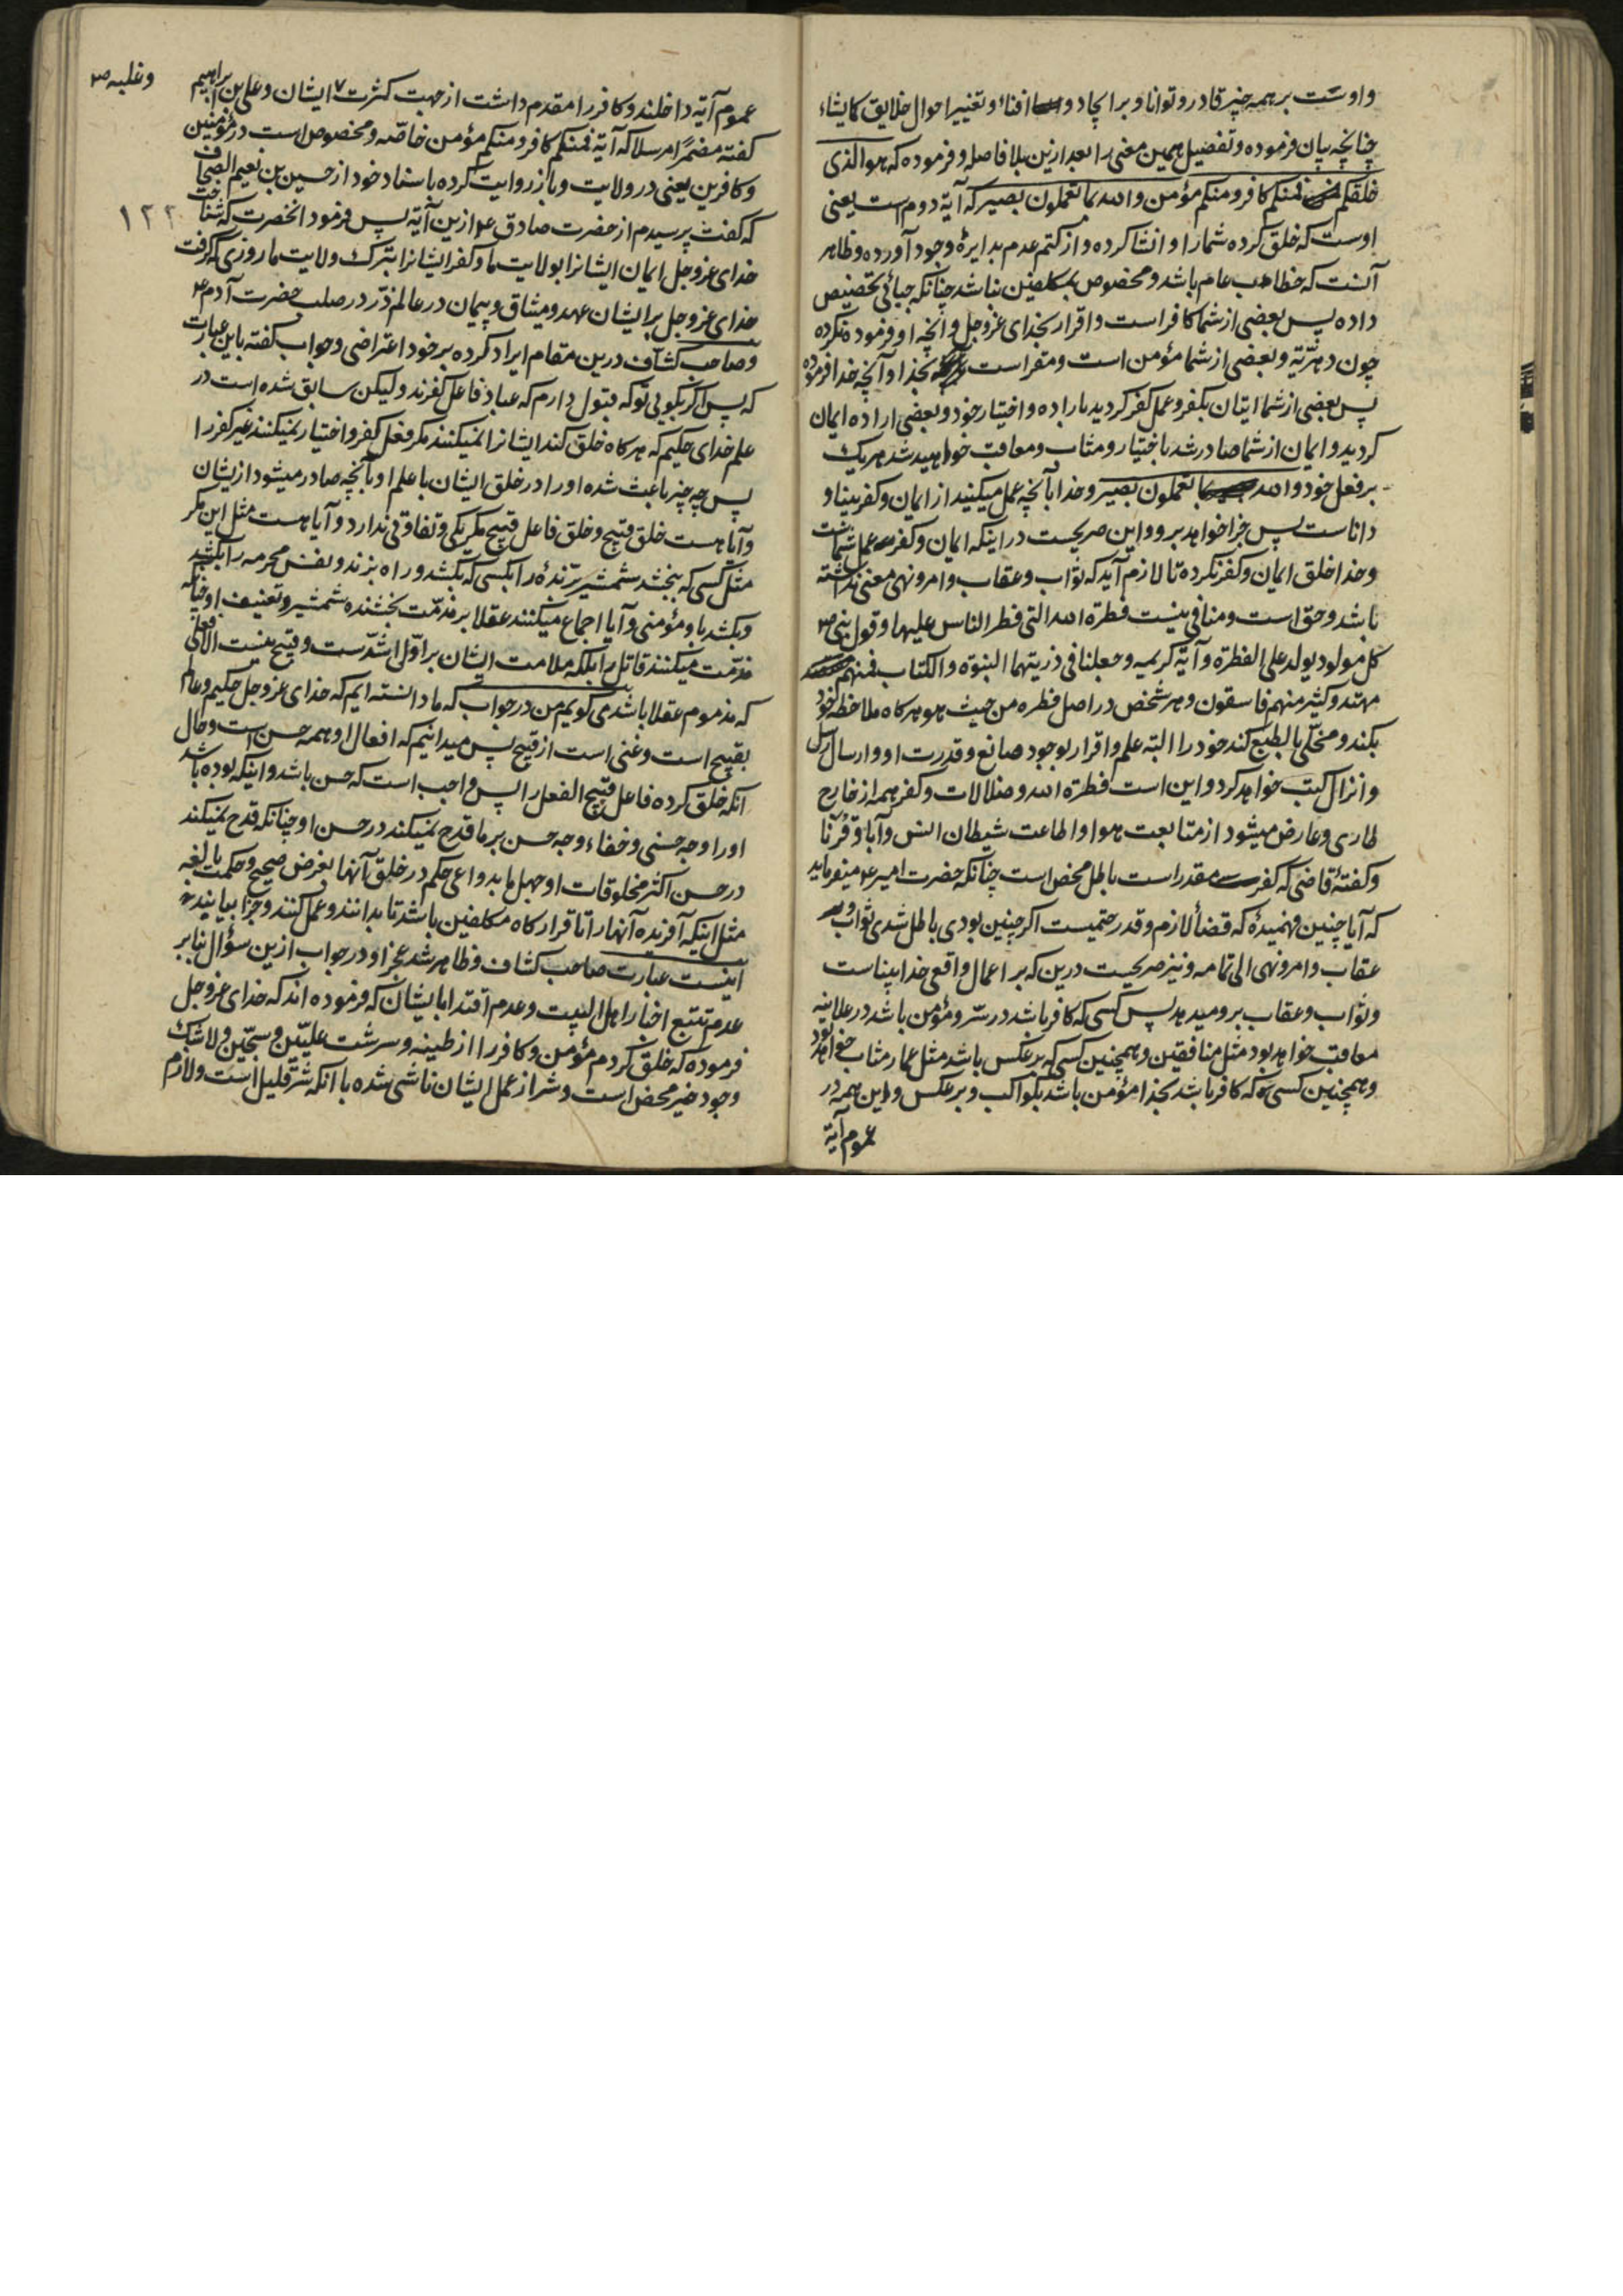 و اوست بر همه چیز قادر و توانا و بر ایجاد و افناء و تغییر احوال خلایق کما یشاء
چنانچه بیان فرموده و تفضیل همین معنی را بعد ازین بلا فاصله و فرموده که هو الذی
خلقکم فمنکم کافر و منکم مؤمن و الله بما تعملون بصیر که آیهٔ دوم است یعنی
اوست که خلق کرده شما را و انشا کرده و از کتم عدم بدایرهٔ وجود آورده و ظاهر
آنست که خطاب عام باشد و مخصوص بمکلفین نباشد چنانکه جبائی تخصیص
داده پس بعضی از شما کافر است و اقرار بخدای عز و جل و آنچه او فرموده نکرده
چون دهریّة و بعضی از شما مؤمن است و مقر است بخدا و آنچه خدا فرموده
پس بعضی از شما ایتان بکفر و عمل کفر کردید باراده و اختیار خود و بعضی اراده ایمان
کردید و ایمان از شما صادر شد باختیار و مثاب و معاقب خواهید شد هر یک
بر فعل خود و الله بما تعملون بصیر و خدا بآنچه عمل میکنید از ایمان و کفر بینا و
داناست پس جزا خواهد بر و و این صریحست در اینکه ایمان و کفر عمل شماست
و خدا خلق ایمان و کفر نکرده تا لازم آید که ثواب و عقاب و امر و نهی معنی نداشته
باشد و حق است و منافی نیست فطرة الله التی فطر الناس علیها و قول نبی ص
کل مولود یولد علی الفطرة و آیهٔ کریمه و جعلنا فی ذریتهما النبوة و الکتاب فمنهم
مهتد و کثیر منهم فاسقون و هر شخص در اصل فطره من حیث هو هر کاه ملاحظه خود
بکند و مخلّی بالطبع کند خود را البته علم و اقرار بوجود صانع و قدرت او و ارسال رسل
و انزال کتب خواهد کرد و این است فطرة الله و ضلالات و کفر همه از خارج
طاری و عارض میشود از متابعت هوا و اطاعت شیطان انس و آبا و قرنا
و کفتهٔ قاضی که کفر مقدر است باطل محض است چنانکه حضرت امیر ع میفرماید
که آیا چنین فهمیدهٔ که قضاً لازم و قدر حتمیست اکر چنین بودی باطل شدی ثواب و
عقاب و امر و نهی الی تمامه و نیز صریحست درین که بر اعمال واقعی خدا بیناست
و ثواب و عقاب برو میدهد پس کسی که کافر باشد در سرّ و مؤمن باشد در علانیه
معاقب خواهد بود مثل منافقین و همچنین کسی که بر عکس باشد مثل عمار مثاب خواهد بود
و همچنین کسی که کافر باشد بخدا مؤمن باشد بکواکب و بر عکس و این همه در
عموم آیة
عموم آیة داخلند و کافر را مقدم داشت از جهت کثرت ۷ ایشان و علی بن ابراهیم
و غلبه ص
کفته مضمراً مرسلا که آیهٔ فمنکم کافر و منکم مؤمن خاصّه و مخصوص است در مؤمنین
و کافرین یعنی در ولایت و باز روایت کرده باسناد خود از حسین بن نعیم الصحاف
که کفت پرسیدم از حضرت صادق ع ازین آیة پس فرمود انحضرت که شناخت
۱۲۲
خدای عز و جل ایمان ایشانرا بولایت ما و کفر ایشانرا بترک ولایت ما روزی که کرفت
خدای عز و جل بر ایشان عهد و میثاق و پیمان در عالم ذرّ در صلب حضرت آدم ع
و صاحب کشاف درین مقام ایراد کرده بر خود اعتراضی و جواب کفته باین عبارت
که پس اکر بکویی تو که قبول دارم که عباد فاعل کفرند و لیکن سابق شده است در
علم خدای حکیم که هر کاه خلق کند ایشانرا نمیکنند مکر فعل کفر و اختیار نمیکنند غیر کفر را
پس چه چیز باعث شده او را در خلق ایشان با علم او بآنچه صادر میشود از یشان
و آیا هست خلق قبیح و خلق فاعل قبیح مکر یکی و تفاوتی ندارد و آیا هست مثل این مکر
مثل کسی که ببخشد شمشیر برّندهٔ را بکسی که بکشد و راه بزند و نفس محرمه را بکشد
و بکشد باو مؤمنی و آیا اجماع میکنند عقلا بر مذمّت بخشنده شمشیر و تعنیف او چنانکه
مذمّت میکنند قاتل را بلکه ملامت ایشان بر اوّل اشدّست و قبیح نیست الا فعلی
که مذموم عقلا باشد می کویم من در جواب که ما دانسته ایم که خدای عز و جل حکیم و عالم
بقبیح است و غنی است از قبیح پس میدانیم که افعال او همه حسن است و حال
آنکه خلق کرده فاعل قبیح الفعل را پس واجب است که حسن باشد و اینکه بوده باشد
او را وجه حسنی و خفاء وجه حسن بر ما قدح نمیکند در حسن او چنانکه قدح نمیکند
در حسن اکثر مخلوقات او جهل ما بدواعی حکم در خلق آنها بغرض صحیح و حکمت بالغه
مثل اینکه آفرنده آنها را تا قرارکاه مکلفین باشد تا بدانند و عمل کنند و جزا بیابند
اینست عبارت صاحب کشاف و ظاهر شد عجز او در جواب ازین سؤال بنا بر
عدم تتبع اخبار اهل البیت و عدم اقتدا بایشان که فرموده اند که خدای عز و جل
فرموده که خلق کردم مؤمن و کافر را از طینه و سرشت علیّین و سجّین و لا شک
وجود خیر محض است و شر از عمل ایشان ناشی شده با آنکه شرّ قلیل است و لازم